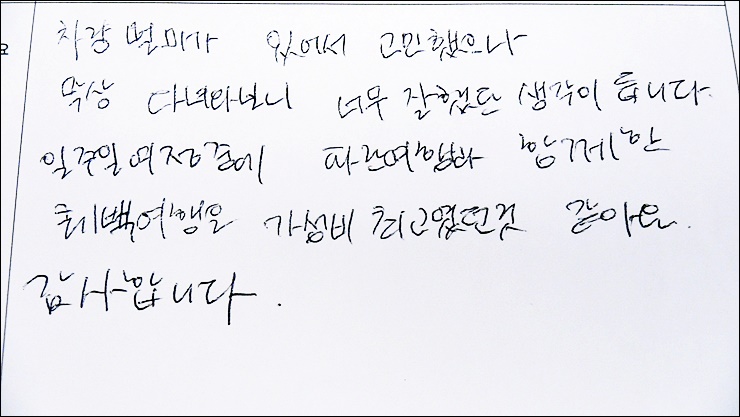 차량 멀미가 있어서 고민했으나
막상 다녀와보니 너무 잘했단 생각이 듭니다.
일주일 여정중에 파란여행과 함께한
퀘백여행은 가성비 최고였던것 같아요.
감사합니다.